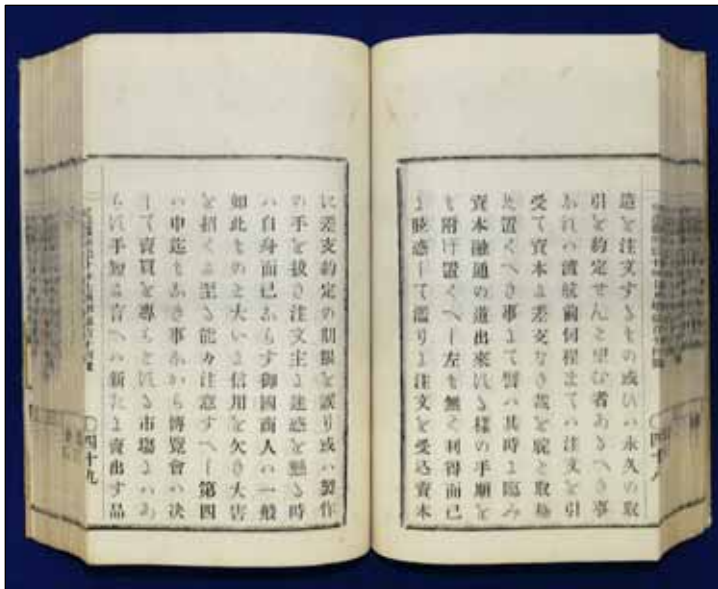 造を注文するもの或いハ永久の取
引を約定せんと望む者あるへき事
なれハ渡航前何程まてハ注文を引
受て資本よ差支なき哉を聢と取極
え置くへき事よて譬ハ其時よ臨み
資本融通の道出來はる様の手順を
も附け置くへし左も無く利得而已
よ眩惑して濫りよ注文を受込資本
四十八
に差支約定の期限を誤り或ハ製作
の手を拔き注文主よ迷惑を懸る時
ハ自身而已ならす御國商人の一般
如此ものと大いよ信用を欠き大害
を招くよ至る能々注意すへし第四
ハ申迄もなき事なから博覽會ハ决
して賣買を專らとはる市塲よハあ
らは手短よ言へハ新たよ賣出す品
四十九